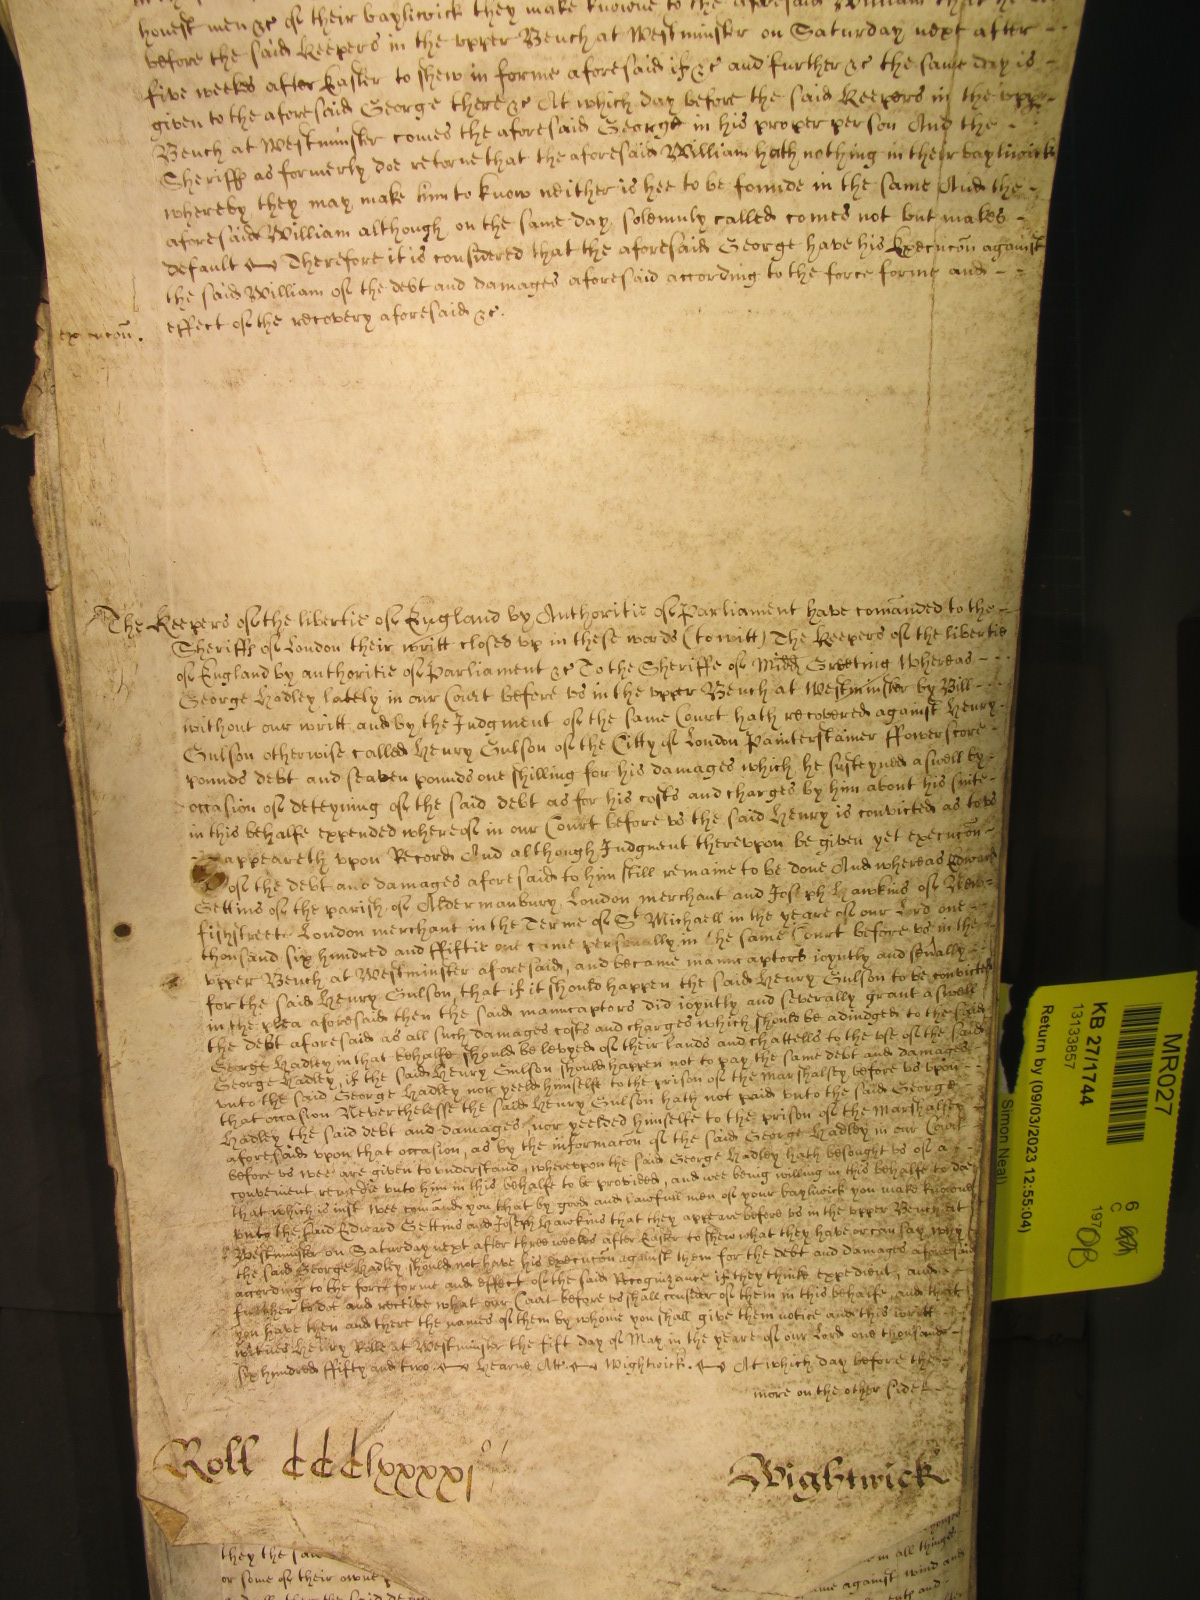 honest men &c of their bayliwick they make knowne to the aforesaid William that he be
before the said Keepers in the upper Bench at Westminster on Saturday next after
five weekes after Easter to shew in forme aforesaid if &c and further &c the same day is
given to the aforesaid George there &c At which day before the said Keepers in the upper
Bench at Westminster comes the aforesaid George in his proper person And the
Sheriff as formerly doe retorne that the aforesaid William hath nothing in their bayliwick
whereby they may make him to know neither is hee to be founde in the same And the
aforesaid William although on the same day solemnly called comes not but makes
default Therefore it is considered that the aforesaid George have his Execucon against
the said William of the debt and damages aforesaid according to the force forme and
effect of the recovery aforesaid &c.
execucon.
The Keepers of the libertie of England by Authoritie of Parliament have comanded to the
Sheriffs of London their writt closed up in these words (to witt) The Keepers of the libertie
of England by authoritie of Parliament &c To the Sheriffe of Midd Greeting Whereas
George Hadley lately in our Court before us in the upper Bench at Westminster by Bill
without our writt and by the Judgment of the same Court hath recovered against Henry
Gulson otherwise called Henry Gulson of the Citty of London Painterstainer ffowerscore
pounds debt and seaven pounds one shilling for his damages which he susteyned aswell by
occasion of deteyning of the said debt as for his costs and charges by him about his suite
in this behalfe expended whereof in our Court before us the said Henry is convicted as to us
appeareth upon Record And although Judgment thereupon be given yet execucon
of the debt and damages aforesaid to him still remaine to be done And whereas Edward
Gettins of the parish of Aldermanbury London merchant and Joseph Hawkins of
fishstreete London merchant in the Terme of St Michaell in the yeare of our Lord one
thousand six hundred and ffiftie one came personally in the same Court before us in the
upper Bench at Westminster aforesaid, and became manucaptors ioyntly and seually
for the said Henry Gulson, that if it should happen the said Henry Gulson to be convicted
in the plea aforesaid then the said manucaptors did ioyntly and severally grant aswell
the debt aforesaid as all such damages costs and charges which should be adiudged to the said
George Hadley in that behalfe should be levyed of their lands and chattells to the use of the said
George Hadley, if the said Henry Gulson should happen not to pay the same debt and damages
unto the said George Hadley nor yeeld himselfe to the prison of the Marshalsey before us upon
that occasion Neverthelesse the said Henry Gulson hath not paid unto the said George
Hadley the said debt and damages, nor yeelded himselfe to the prison of the Marshalsey
aforesaid upon that occasion, as by the informacon of the said George Hadley in our Court
before us wee are given to understand, whereupon the said George Hadley hath besought us of a
convenient remedie unto him in this behalfe to be provided, and wee being willing in this behalfe to doe
that which is iust Wee comand you that by good and lawfull men of your bayliwick you make knowne
unto the said Edward Gettins and Joseph Hawkins that they appeare before us in the upper Bench at
Westminster on Saturday next after three weekes after Easter to shew what they have or can say why
the said George Hadley should not have his execucon against them for the debt and damages aforesaid
according to the force forme and effect of the said Recognizance if they thinke expedient, and
further to doe and receive what our Court before us shall consider of them in this behalfe and that
you have then and there the names of them by whome you shall give them notice and this writt
witnes Henry Rolle at Westminster the fift day of May in the yeare of our Lord one thousand
six hundred ffifty and two Hearne Att Wightwick. At which day before the
more on the other side
Roll CCClxxxxj
Wightwick
they the said
or some of their owne
in all thinges
against wind and
MR027
KB 27/1744
13133857
6
C
197
08
Return by (09/03/2023 12:55:04)
Simon Neal